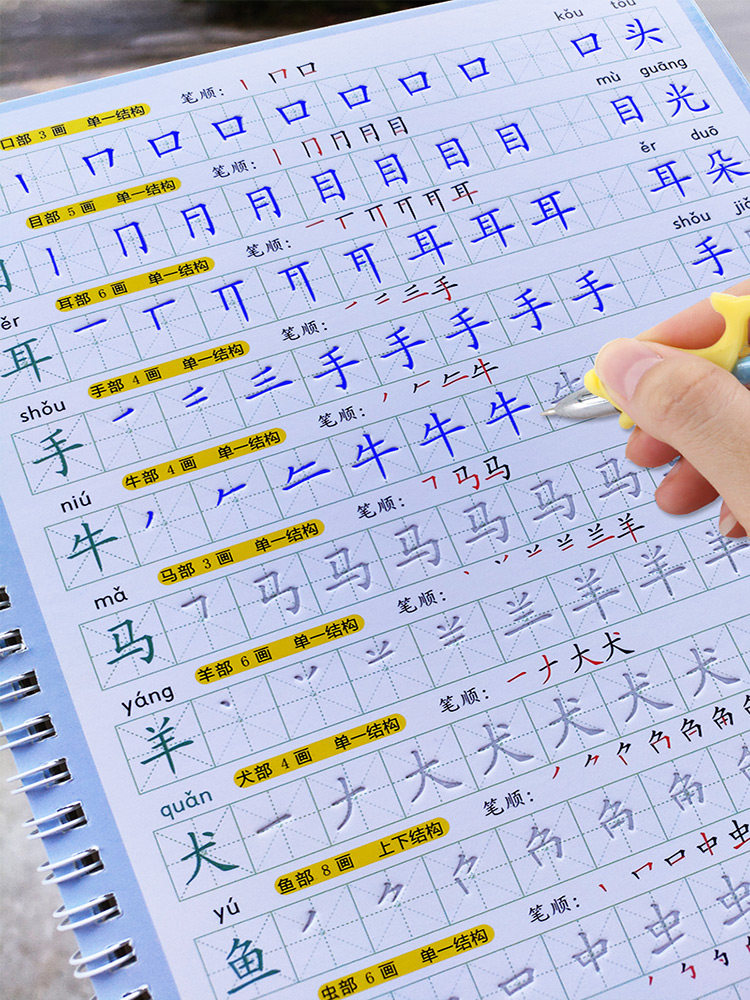 口部 3 画 单一结构 笔顺: 丨 冂 口 kǒu tóu
丨 冂 口 口 口 口 口 口 口 头
目部 5 画 单一结构 笔顺: 丨 冂 月 目 mù guāng
丨 冂 月 月 目 目 目 目 目 光
耳部 6 画 单一结构 笔顺: 一 丅 丌 耳 ěr duō
ěr
耳 一 丅 丌 耳 耳 耳 耳 耳 朵
手部 4 画 单一结构 笔顺: 一 二 三 手 shǒu
shǒu
手 一 二 三 手 手 手 手 手 手
牛部 4 画 单一结构 笔顺: 丿 𠂉 牛
niú
牛 丿 𠂉 牛 牛 牛 牛
马部 3 画 单一结构 笔顺: ㇕ 马 马
mǎ
马 ㇕ 马 马 马 马 马 马
羊部 6 画 单一结构 笔顺: 丶 丷 兰 羊
yáng
羊 丶 丷 兰 羊 羊 羊
犬部 4 画 单一结构 笔顺: 一 ナ 大 犬
quǎn
犬 一 ナ 大 犬 犬 犬 犬
鱼部 8 画 上下结构 笔顺: 丿 ⺈
yú
鱼 丿 ⺈
虫部 6 画 单一结构 笔顺: 丶 口 口 中 虫 虫
口 中 虫 虫